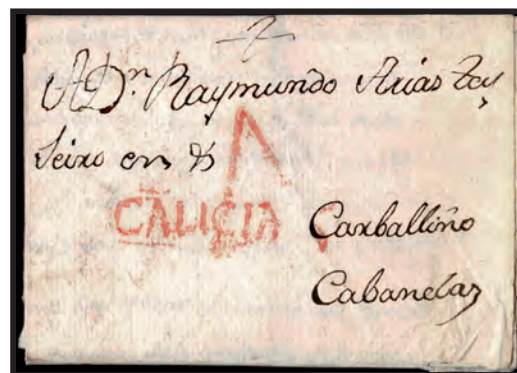 A Dn. Raymundo Arias Tey
seiro en
A
GALICIA
Carballiño
Cabanelas